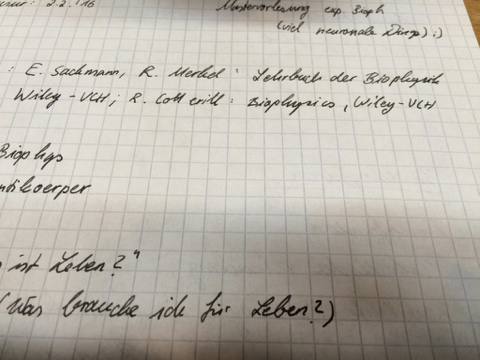 : 2.2. '16
Mastervorlesung exp. Bioph
(viel neuronale Dinge) :)
: E. Sackmann, R. Merkel: Lehrbuch der Biophysik
Wiley-VCH; R. Cotterill: Biophysics, Wiley-VCH
Biophys
ntikoerper
s ist Leben?"
(Was brauche ich für Leben?)